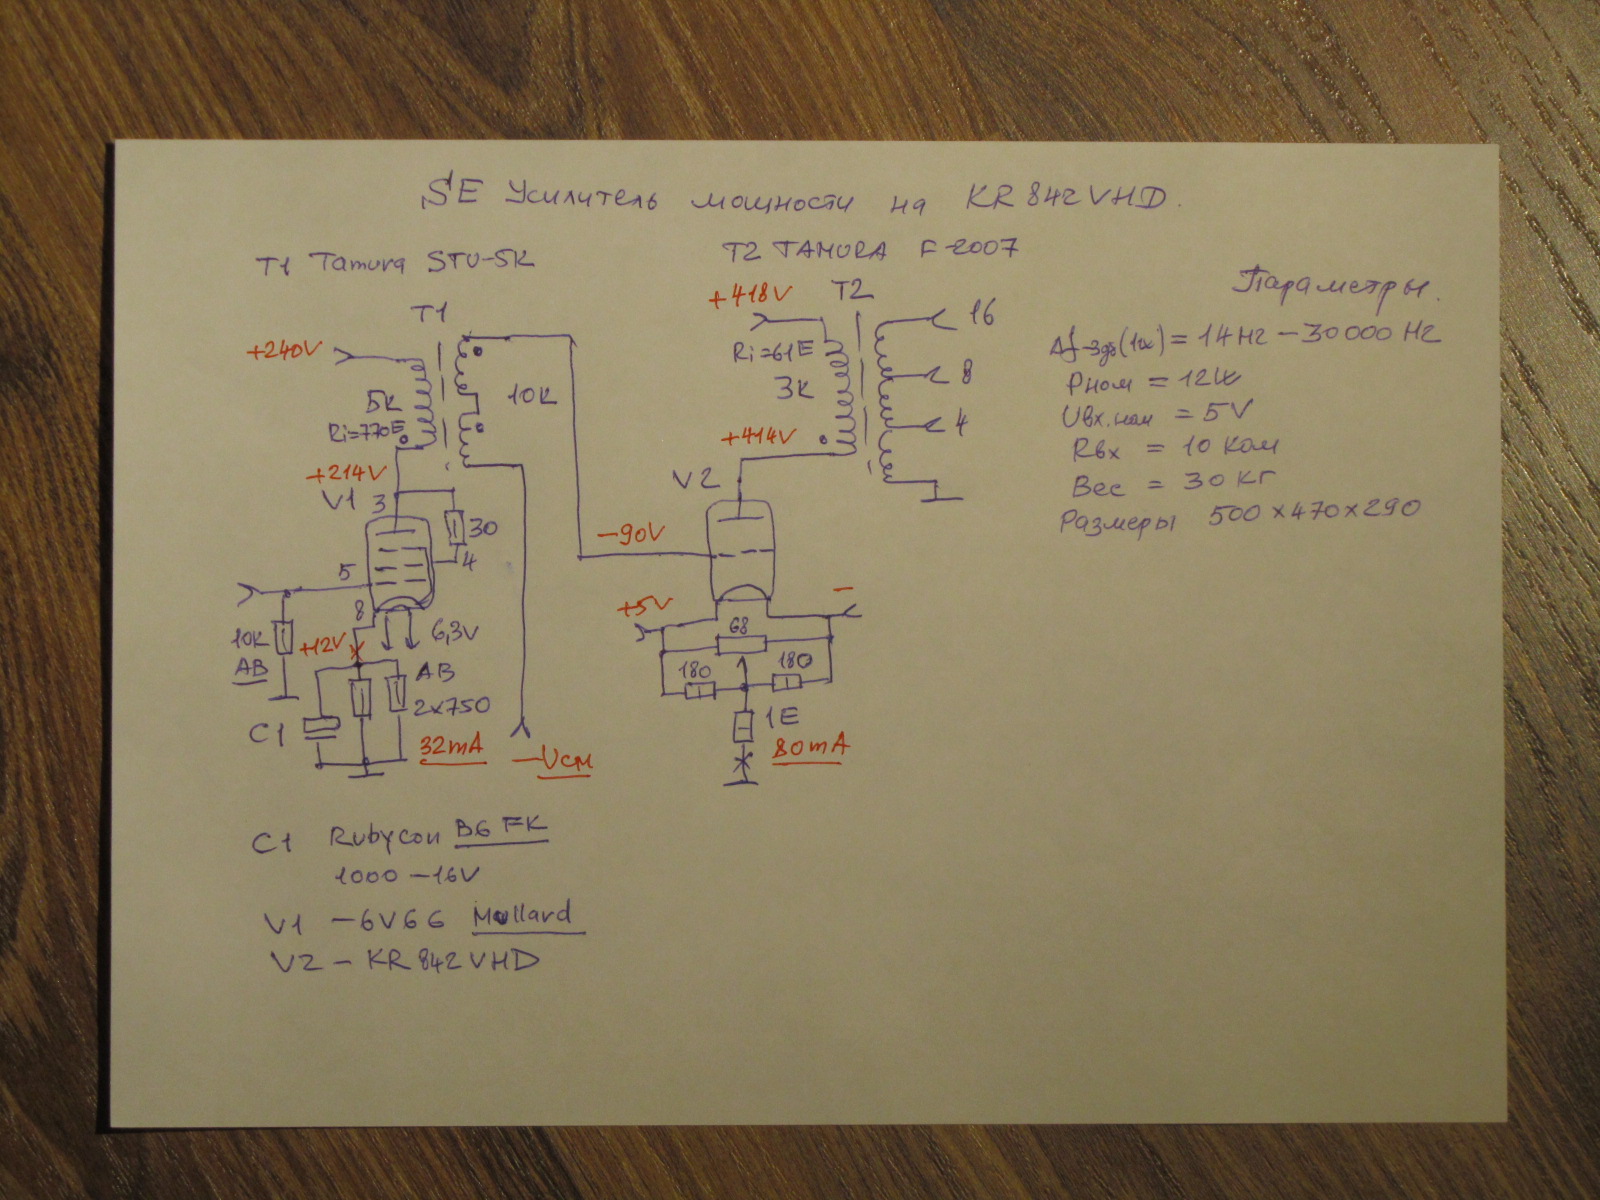 SE Усилитель мощности на KR 842 VHD.
T1 Tamura STU-5K
T2 TAMURA F-2007
T1
+240V
5K
Ri=770E
+214V
10K
V1
3
30
4
5
8
6,3V
10K
AB
+12V
AB
2x750
C1
32mA
-Uсм
+418V
T2
Ri=61E
3K
+414V
16
8
4
V2
-90V
+5V
-
68
180
180
1E
80mA
Параметры.
Δf-3дб(1вт) = 14Hz - 30000 Hz
Pном = 12W
Uвх.ном = 5V
Rвх = 10 Ком
Вес = 30 кг
Размеры 500 x 470 x 290
C1 Rubycon BG FK
1000 - 16V
V1 - 6V6G Mullard
V2 - KR 842 VHD